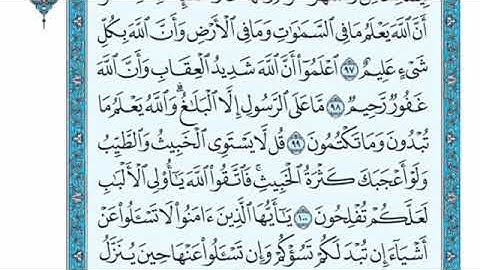 أَنَّ ٱللَّهَ يَعْلَمُ مَا فِى ٱلسَّمَٰوَٰتِ وَمَا فِى ٱلْأَرْضِ وَأَنَّ ٱللَّهَ بِكُلِّ
شَىْءٍ عَلِيمٌ ٩٧ ٱعْلَمُوٓا۟ أَنَّ ٱللَّهَ شَدِيدُ ٱلْعِقَابِ وَأَنَّ ٱللَّهَ
غَفُورٌ رَّحِيمٌ ٩٨ مَّا عَلَى ٱلرَّسُولِ إِلَّا ٱلْبَلَٰغُ ۗ وَٱللَّهُ يَعْلَمُ مَا
تُبْدُونَ وَمَا تَكْتُمُونَ ٩٩ قُل لَّا يَسْتَوِى ٱلْخَبِيثُ وَٱلطَّيِّبُ
وَلَوْ أَعْجَبَكَ كَثْرَةُ ٱلْخَبِيثِ ۚ فَٱتَّقُوا۟ ٱللَّهَ يَٰٓأُو۟لِى ٱلْأَلْبَٰبِ
لَعَلَّكُمْ تُفْلِحُونَ ١٠٠ يَٰٓأَيُّهَا ٱلَّذِينَ ءَامَنُوا۟ لَا تَسْـَٔلُوا۟ عَنْ
أَشْيَآءَ إِن تُبْدَ لَكُمْ تَسُؤْكُمْ وَإِن تَسْـَٔلُوا۟ عَنْهَا حِينَ يُنَزَّلُ